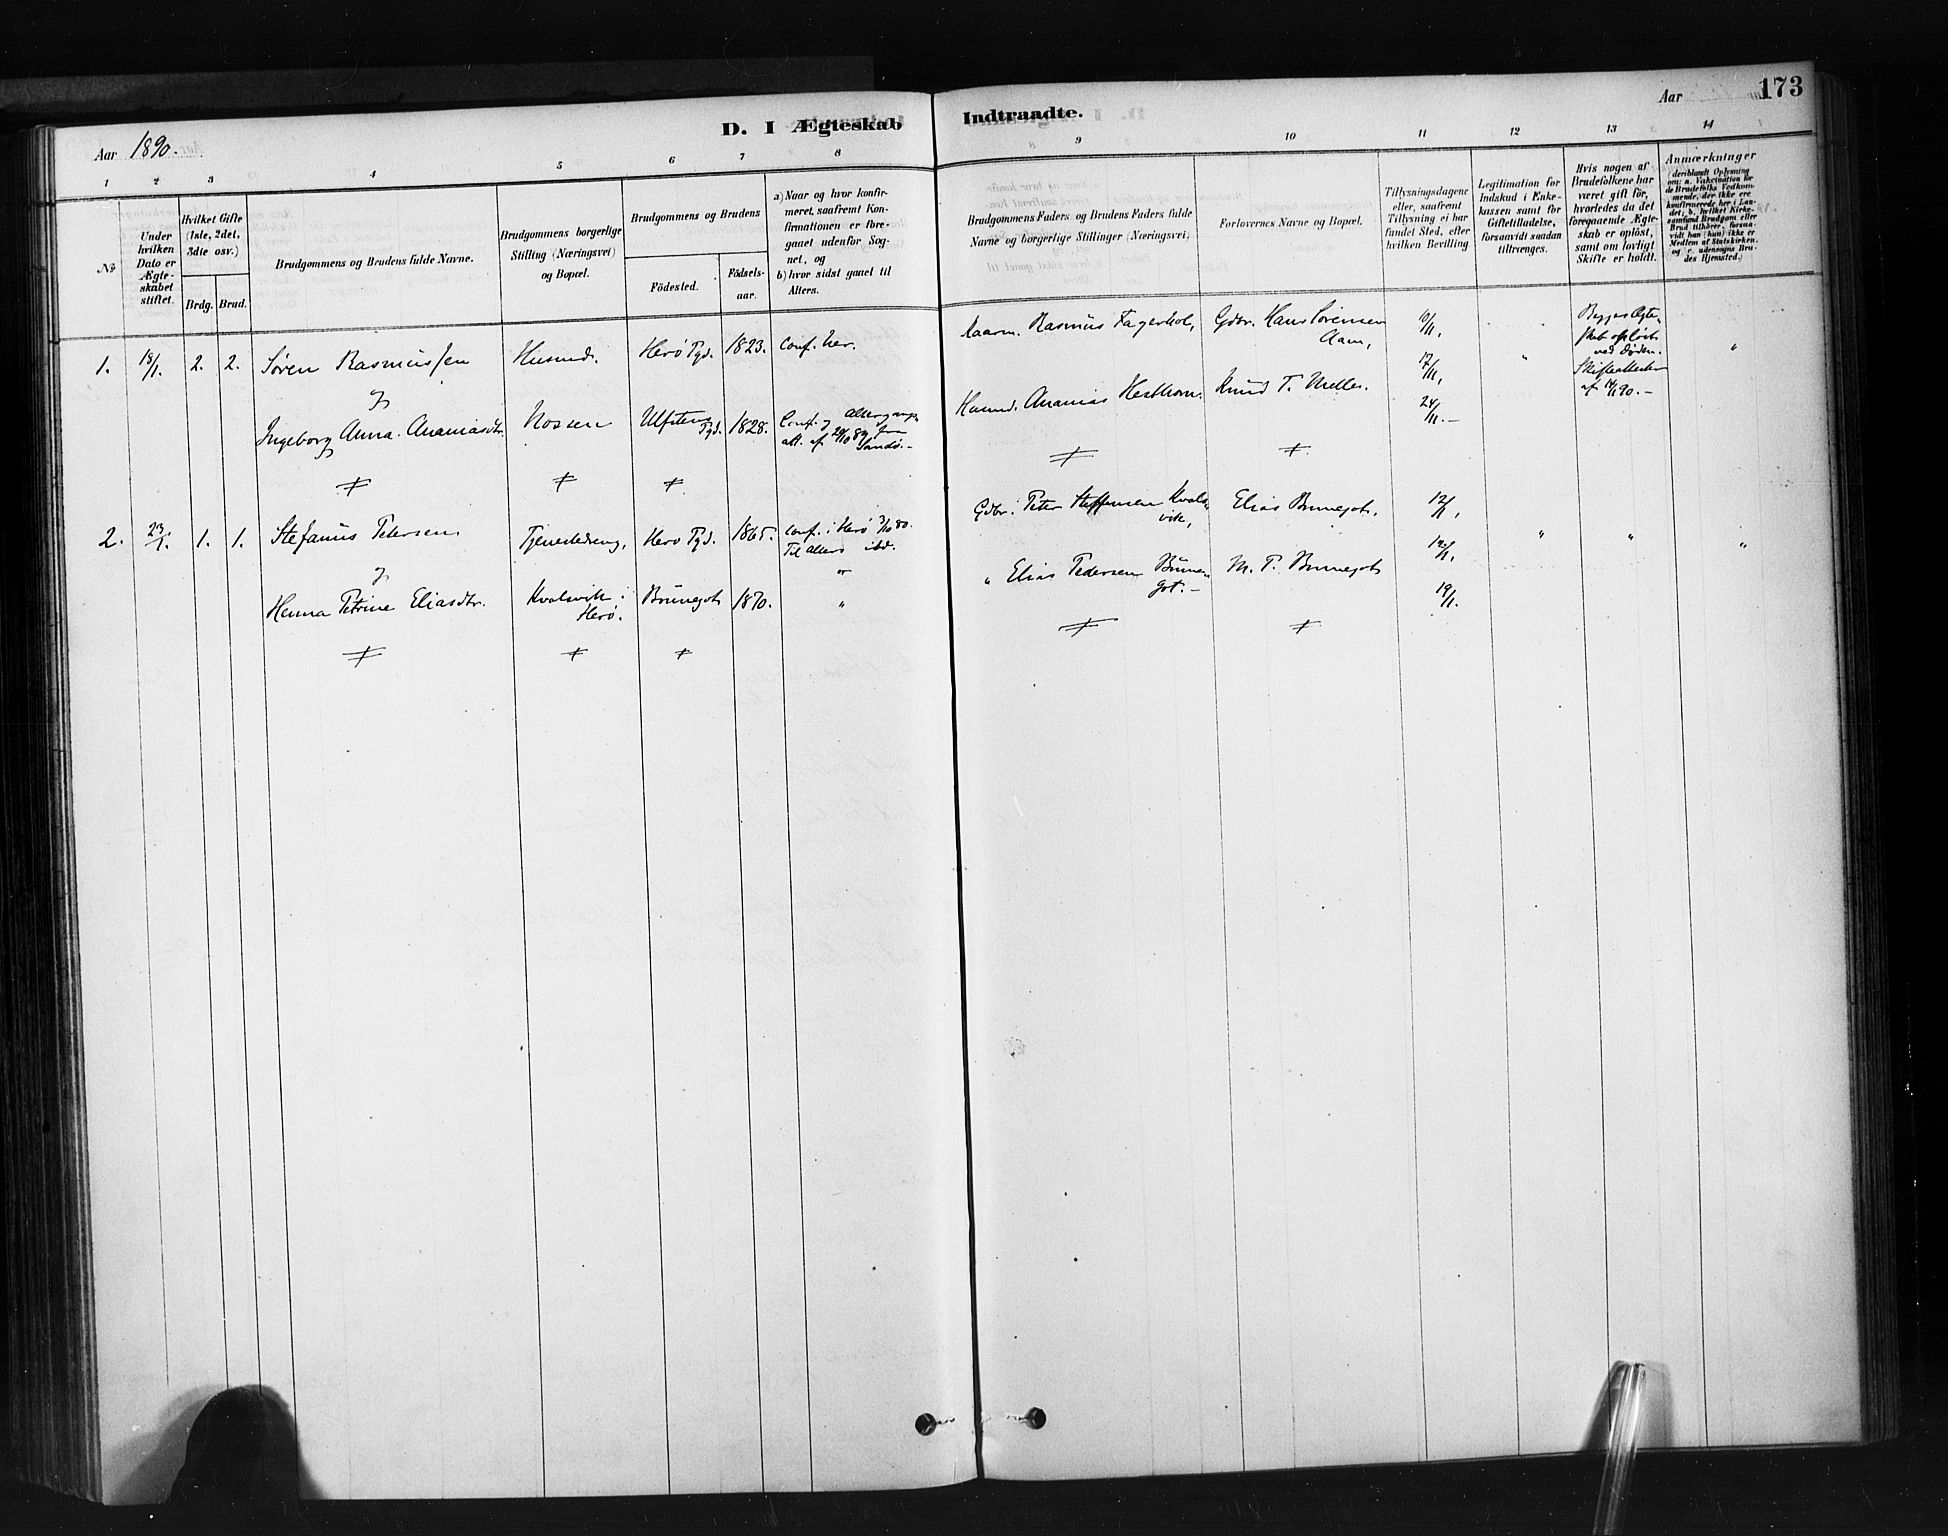 173
Aar 1890.
D. I Ægteskab Indtraadte.
Aar
1 2 3 4 5 6 7 8 9 10 11 12 13 14
No
Under
hvilken
Dato er
Ægte-
skabet
stiftet.
Hvilket Gifte
(1ste, 2det,
3die osv.)
Brdg. Brud.
Brudgommens og Brudens fulde Navne.
Brudgommens borgerlige
Stilling (Næringsvei)
og Bopæl.
Brudgommens og Brudens
Födested.
Födsels-
aar.
a) Naar og hvor konfir-
meret, saafremt Kon-
firmationen er fore-
gaaet udenfor Sog-
net, og
b) hvor sidst gaaet til
Alters.
Brudgommens Faders og Brudens Faders fulde
Navne og borgerlige Stillinger (Næringsvei)
Forlovernes Navne og Bopæl.
Tillysningsdagene
eller, saafremt
Tillysning ei har
fundet Sted, efter
hvilken Bevilling
Legitimation for
Indskud i Enke-
kassen samt for
Giftetilladelse,
forsaavidt saadan
tiltrænges.
Hvis nogen af
Brudefolkene har
været gift før,
hvorledes da det
foregaaende Ægte-
skab er oplöst,
samt om lovligt
Skifte er holdt.
Anmærkninger
(deriblandt Oplysning
om: a. Vakcination for
de Brudefolks Vedkom-
mende, der ikke ere
konfirmerede her i Lan-
det; b. hvilket Kirke-
samfund Brudgom eller
Brud tilhörer, forsaa-
vidt han (hun) ikke er
Medlem af Statskirken,
og c. udensogns Bru-
des Hjemsted.)
1. 18/1. 2. 2. Søren Rasmussen Husmd. Herø Pgd. 1823. Conf. her.
Ingeborg Anna Ananiasdtr. Nossen Ulfstens Pgd. 1828. Conf. og altergangs
att. af 29/10 89 fra
Sandö.-
Kaarm. Rasmus Fagerhol, Gdbr. Hans Sörensen
Aam,
Husmd. Ananias Hestholm. Knud T. Melle.
Begges Ægte-
skab opløst
ved Døden.
Skifteattester
af 14/1 90.-
2. 23/1. 1. 1. Stefanus Petersen Tjenestedreng, Herø Pgd. 1865. Conf. i Herø 3/10 80.
Til alters ibd.
Henna Petrine Eliasdtr. Kvalsvik i Brunegot 1870. "
Herø.
Gdbr. Peter Steffensen Kvals-
vik, Elias Brunegot. 12/1,
" Elias Pedersen Brune-
got.- M. P. Brunegot 12/1,
19/1.